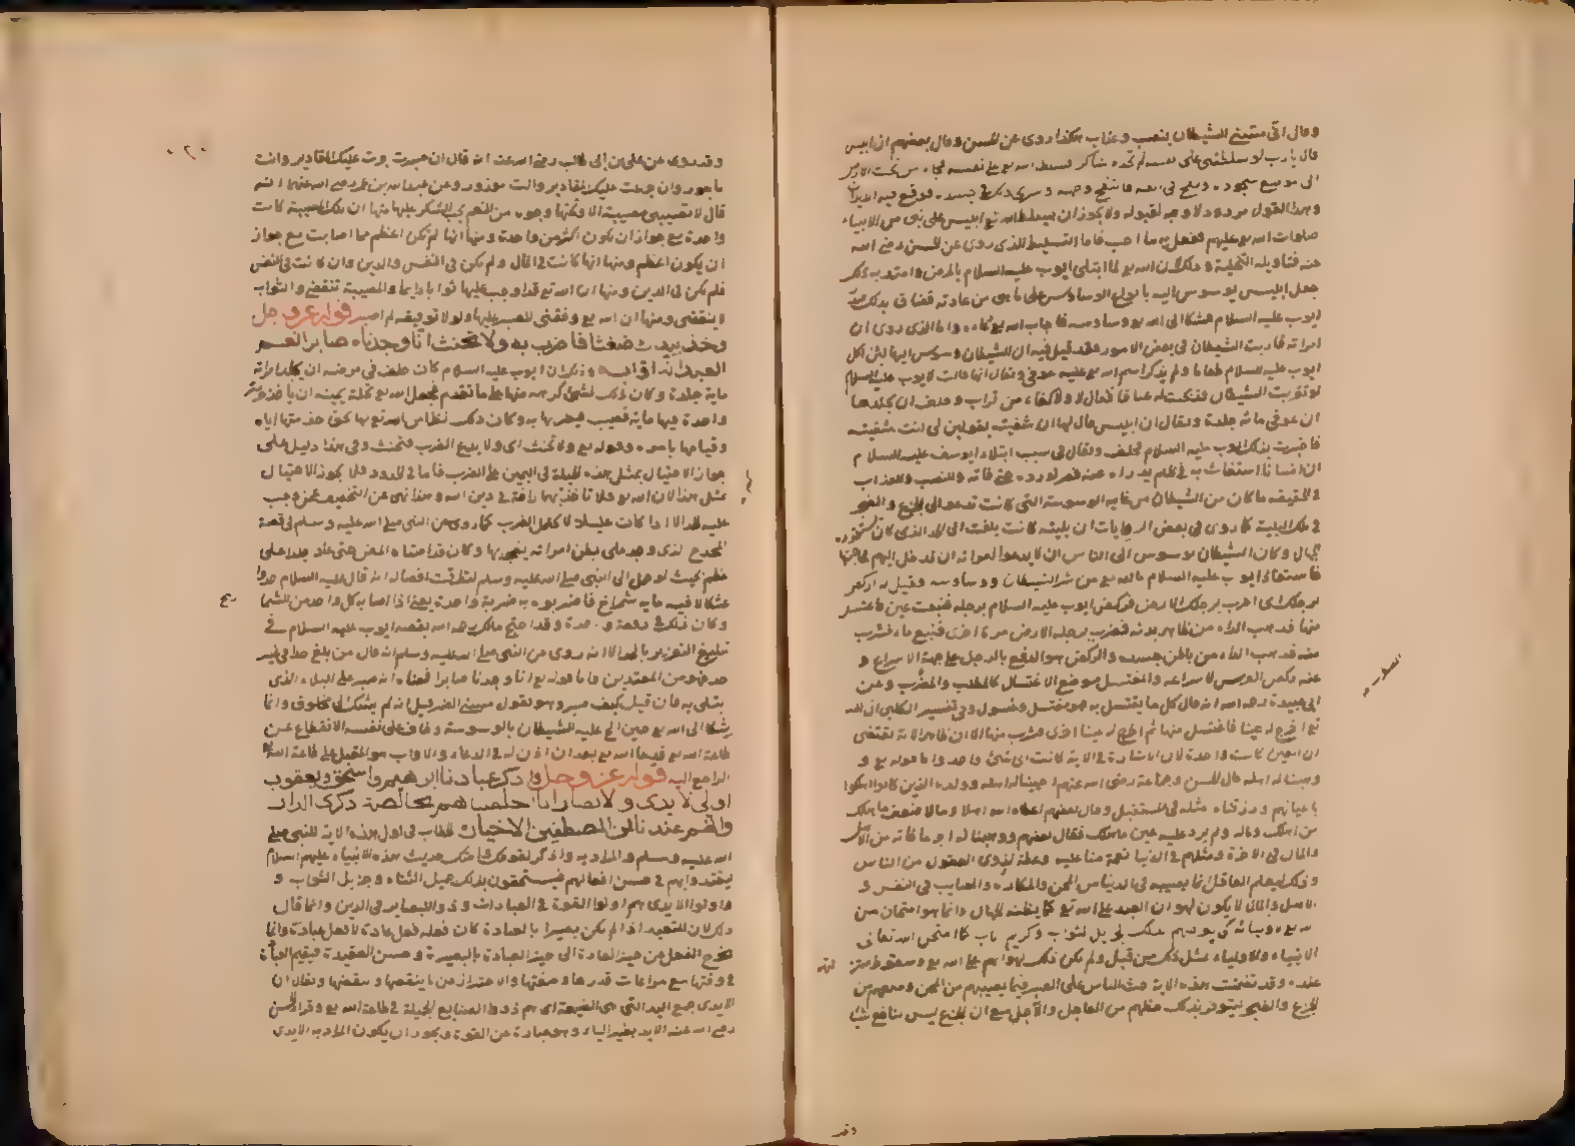 وقال اني مسني الشيطان بنصب وعذاب هكذا روى عن الحسن وقال بعضهم ان ابليس
قال يا رب لو سلطتني على نفسه لم تجده شاكرا فسلطه الله تع على نفسه فجاء من تحت الارض
الى موضع سجوده ونفخ في انفه
وهذا القول مردود لا وجه لقبوله ولا يجوز ان يسلط الله تع ابليس على نبي من الانبياء
صلوات الله تع عليهم ليفعل به ما احب فاما التسليط الذي روى عن الحسن رضي الله
عنه فتاويله التخلية وذلك ان الله تع لما ابتلى ايوب عليه السلام بالمرض
جعل ابليس يوسوس اليه بانواع الوساوس على ما هو من عادته فضاق بذلك صدر
ايوب عليه السلام فشكا الى الله تع وساوسه فاجاب الله تع دعاءه واما الذي روى ان
امراته قاربت الشيطان في بعض الامور فقد قيل فيه ان الشيطان وسوس اليها لئن اكل
ايوب عليه السلام طعاما ولم يذكر اسم الله تع عليه عوفي ويقال انها قالت لايوب عليه السلام
لو تقربت الى الشيطان فذبحت له عناقا فقال لا ولا كفا من تراب وحلف ان يجلدها
ان عوفي مائة جلدة ويقال ان ابليس قال لها ان شفيته تقولين لي انت شفيته
فاخبرت بذلك ايوب عليه السلام فحلف ويقال في سبب ابتلاء ايوب عليه السلام
ان انسانا استغاث به في ظلم يدراه عنه فصبر لورده حتى فاته والنصب والعذاب
في الحقيقة ما كان من الشيطان من غاية الوسوسة التي كانت تدعو الى الجزع والضجر
في تلك البلية كما روى في بعض الروايات ان بليته كانت بلغت الى الحد الذي كان يستقذره
الجهال وكان الشيطان يوسوس الى الناس ان لا يدعوا امراته ان تدخل اليهم لحاجتها
فاستعاذ ايوب عليه السلام بالله تع من شر الشيطان ووساوسه وقيل له اركض
برجلك اي اضرب برجلك الارض فركض ايوب عليه السلام برجله فنبعت عين فاغتسل
منها فذهب الداء من ظاهر بدنه فضرب برجله الارض مرة اخرى فنبع ماء فشرب
منه فذهب الداء من باطن جسده والركض هو الدفع بالرجل على جهة الاسراع و
منه ركض الفرس لاسراعه والمغتسل موضع الاغتسال كالمطلب والمضرب وعن
ابي عبيدة رحمه الله انه قال كل ما يغتسل به فهو مغتسل وغسول وفي تفسير الكلبي ان الله
تع اخرج له عينا فاغتسل منها ثم اخرج له عينا اخرى فشرب منها الا ان ظاهر الاية يقتضي
ان العين كانت واحدة لان الاشارة في الاية كانت الى شيء واحد واما قوله تع و
وهبنا له اهله قال الحسن وجماعة رضي الله عنهم احيينا له اهله وولده الذين كانوا هلكوا
باعيانهم ورزقناه مثله في المستقبل وقال بعضهم اعطاه الله اهلا ومالا ضعف ما هلك
من اهله وماله ولم يرد عليه عين ما هلك فقال بعضهم ووهبنا له اجر ما فاته من الاهل
والمال في الاخرة ومثلهم في الدنيا نعمة منا عليه وعظة لذوي العقول من الناس
وذلك ليعلم العاقل انما يصيبه في الدنيا من المحن والمكاره والمصايب في النفس و
الاهل والمال لا يكون لهوان العبد على الله تع كما يظنه الجهال وانما هو امتحان من
الله تع وبيانه كي يوسهم بذلك لجزيل الثواب وكريم ماب كما امتحن الله تعالى
الانبياء والاولياء بمثل ذلك من قبل ولم يكن ذلك لهوانهم على الله تع وسقوط منز
لته
عنده وقد تضمنت هذه الاية حث الناس على الصبر فيما يصيبهم من المحن ومنعهم من
الجزع والضجر ليتوفر بذلك حظهم من العاجل والآجل مع ان الجزع ليس بنافع شيئا
وقد
وقد روى عن علي بن ابي طالب رضي الله عنه انه قال ان صبرت جرت عليك المقادير وانت
ماجور وان جزعت جرت عليك المقادير وانت موزور وعن عبد الله بن عمر رضي الله عنهما انه
قال لا تصيبني مصيبة الا ولله فيها وجوه من النعم يجب الشكر عليها منها ان تلك المصيبة كانت
واحدة مع جواز ان يكون اكثر من واحدة ومنها انها لم تكن اعظم مما اصابت مع جواز
ان يكون اعظم ومنها انها كانت في المال ولم تكن في النفس والدين وان كانت في النفس
فلم تكن في الدين ومنها ان الله تع قد اوجب عليها ثوابا دايما والمصيبة تنقضي والثواب
لا ينقضي ومنها ان الله تع وفقني للصبر عليها ولولا توفيقه لم اصبر قوله عز وجل
وخذ بيدك ضغثا فاضرب به ولا تحنث انا وجدناه صابرا نعم
العبد انه اواب وذلك ان ايوب عليه السلام كان حلف في مرضه ان يجلد امراته
ماية جلدة وكان ذلك لشيء كرهه منها على ما تقدم فجعل الله تع تحلة يمينه ان ياخذ حزمة
واحدة فيها ماية قضيب فيضربها به وكان ذلك نظرا من الله تع لها بحق خدمتها اياه
وقيامها بامره وقوله تع ولا تحنث اي ولا تدع الضرب فتحنث وفي هذا دليل على
جواز الاحتيال بمثل هذه الحيلة في اليمين على الضرب فاما في الحدود فلا يجوز الاحتيال
بمثل هذا لان الله تع قال ولا تاخذكم بهما رافة في دين الله وهذا نهى عن التخفيف عمن وجب
عليه الحد الا اذا كانت عليلا لا يحتمل الضرب كما روى عن النبي صلى الله عليه وسلم في قصة
المخدع الذي وجد على بطن امراة يفجر بها وكان قد اضناه المرض حتى عاد جلدا على
عظم بحيث لو حمل الى النبي صلى الله عليه وسلم لتفرقت اعضاؤه انه قال عليه السلام خذوا
عثكالا فيه ماية شمراخ فاضربوه به ضربة واحدة يعني اذا اصابه كل واحد من الشما
ريخ
وكان ذلك في دفعة واحدة وقد احتج مالك رحمه الله بقصة ايوب عليه السلام في
تبليغ التعزير بالحد الا انه روى عن النبي صلى الله عليه وسلم انه قال من بلغ حدا في غير
حد فهو من المعتدين واما قوله تع انا وجدناه صابرا فمعناه انه صبر على البلاء الذي
بتلى به فان قيل كيف صبر وهو يقول مسني الضر قيل انه لم يشك الى مخلوق وانما
شكا الى الله تع حين الح عليه الشيطان بالوسوسة وخاف على نفسه الانقطاع عن
طاعة الله تع فدعا الله تع بعد ان اذن له في الدعاء والاواب هو المقبل على طاعة الله تع
الراجع اليه قوله عز وجل واذكر عبادنا ابراهيم واسحق ويعقوب
اولي الايدي والابصار انا اخلصناهم بخالصة ذكرى الدار
وانهم عندنا لمن المصطفين الاخيار الخطاب في اول هذه الاية للنبي صلى
الله عليه وسلم والمراد به واذكر لقومك وامتك حديث هؤلاء الانبياء عليهم السلام
ليقتدوا بهم في حسن افعالهم فيستحقون بذلك جميل الثناء وجزيل الثواب و
واولوا الايدي هم اولوا القوة في العبادات وذوا البصاير في الدين وانما قال
ذلك لان المتعبد اذا لم يكن بصيرا بالعبادة كان فعله فعل عادة لا فعل عبادة وانما
يخرج الفعل من حيز العادة الى حيز العبادة بالبصيرة وحسن العقيدة فيقيم العبادة
في وقتها مع مراعات قدرها وصفتها والاحتراز من ما ينقصها وينقضها ويقال ان
الايدي جمع اليد التي هي الصنيعة اي هم ذووا الصنايع الجميلة في طاعة الله تع وقرا الحسن
رضي الله عنه الايد بغير الياء وهو عبارة عن القوة ويجوز ان يكون المراد به الايدي